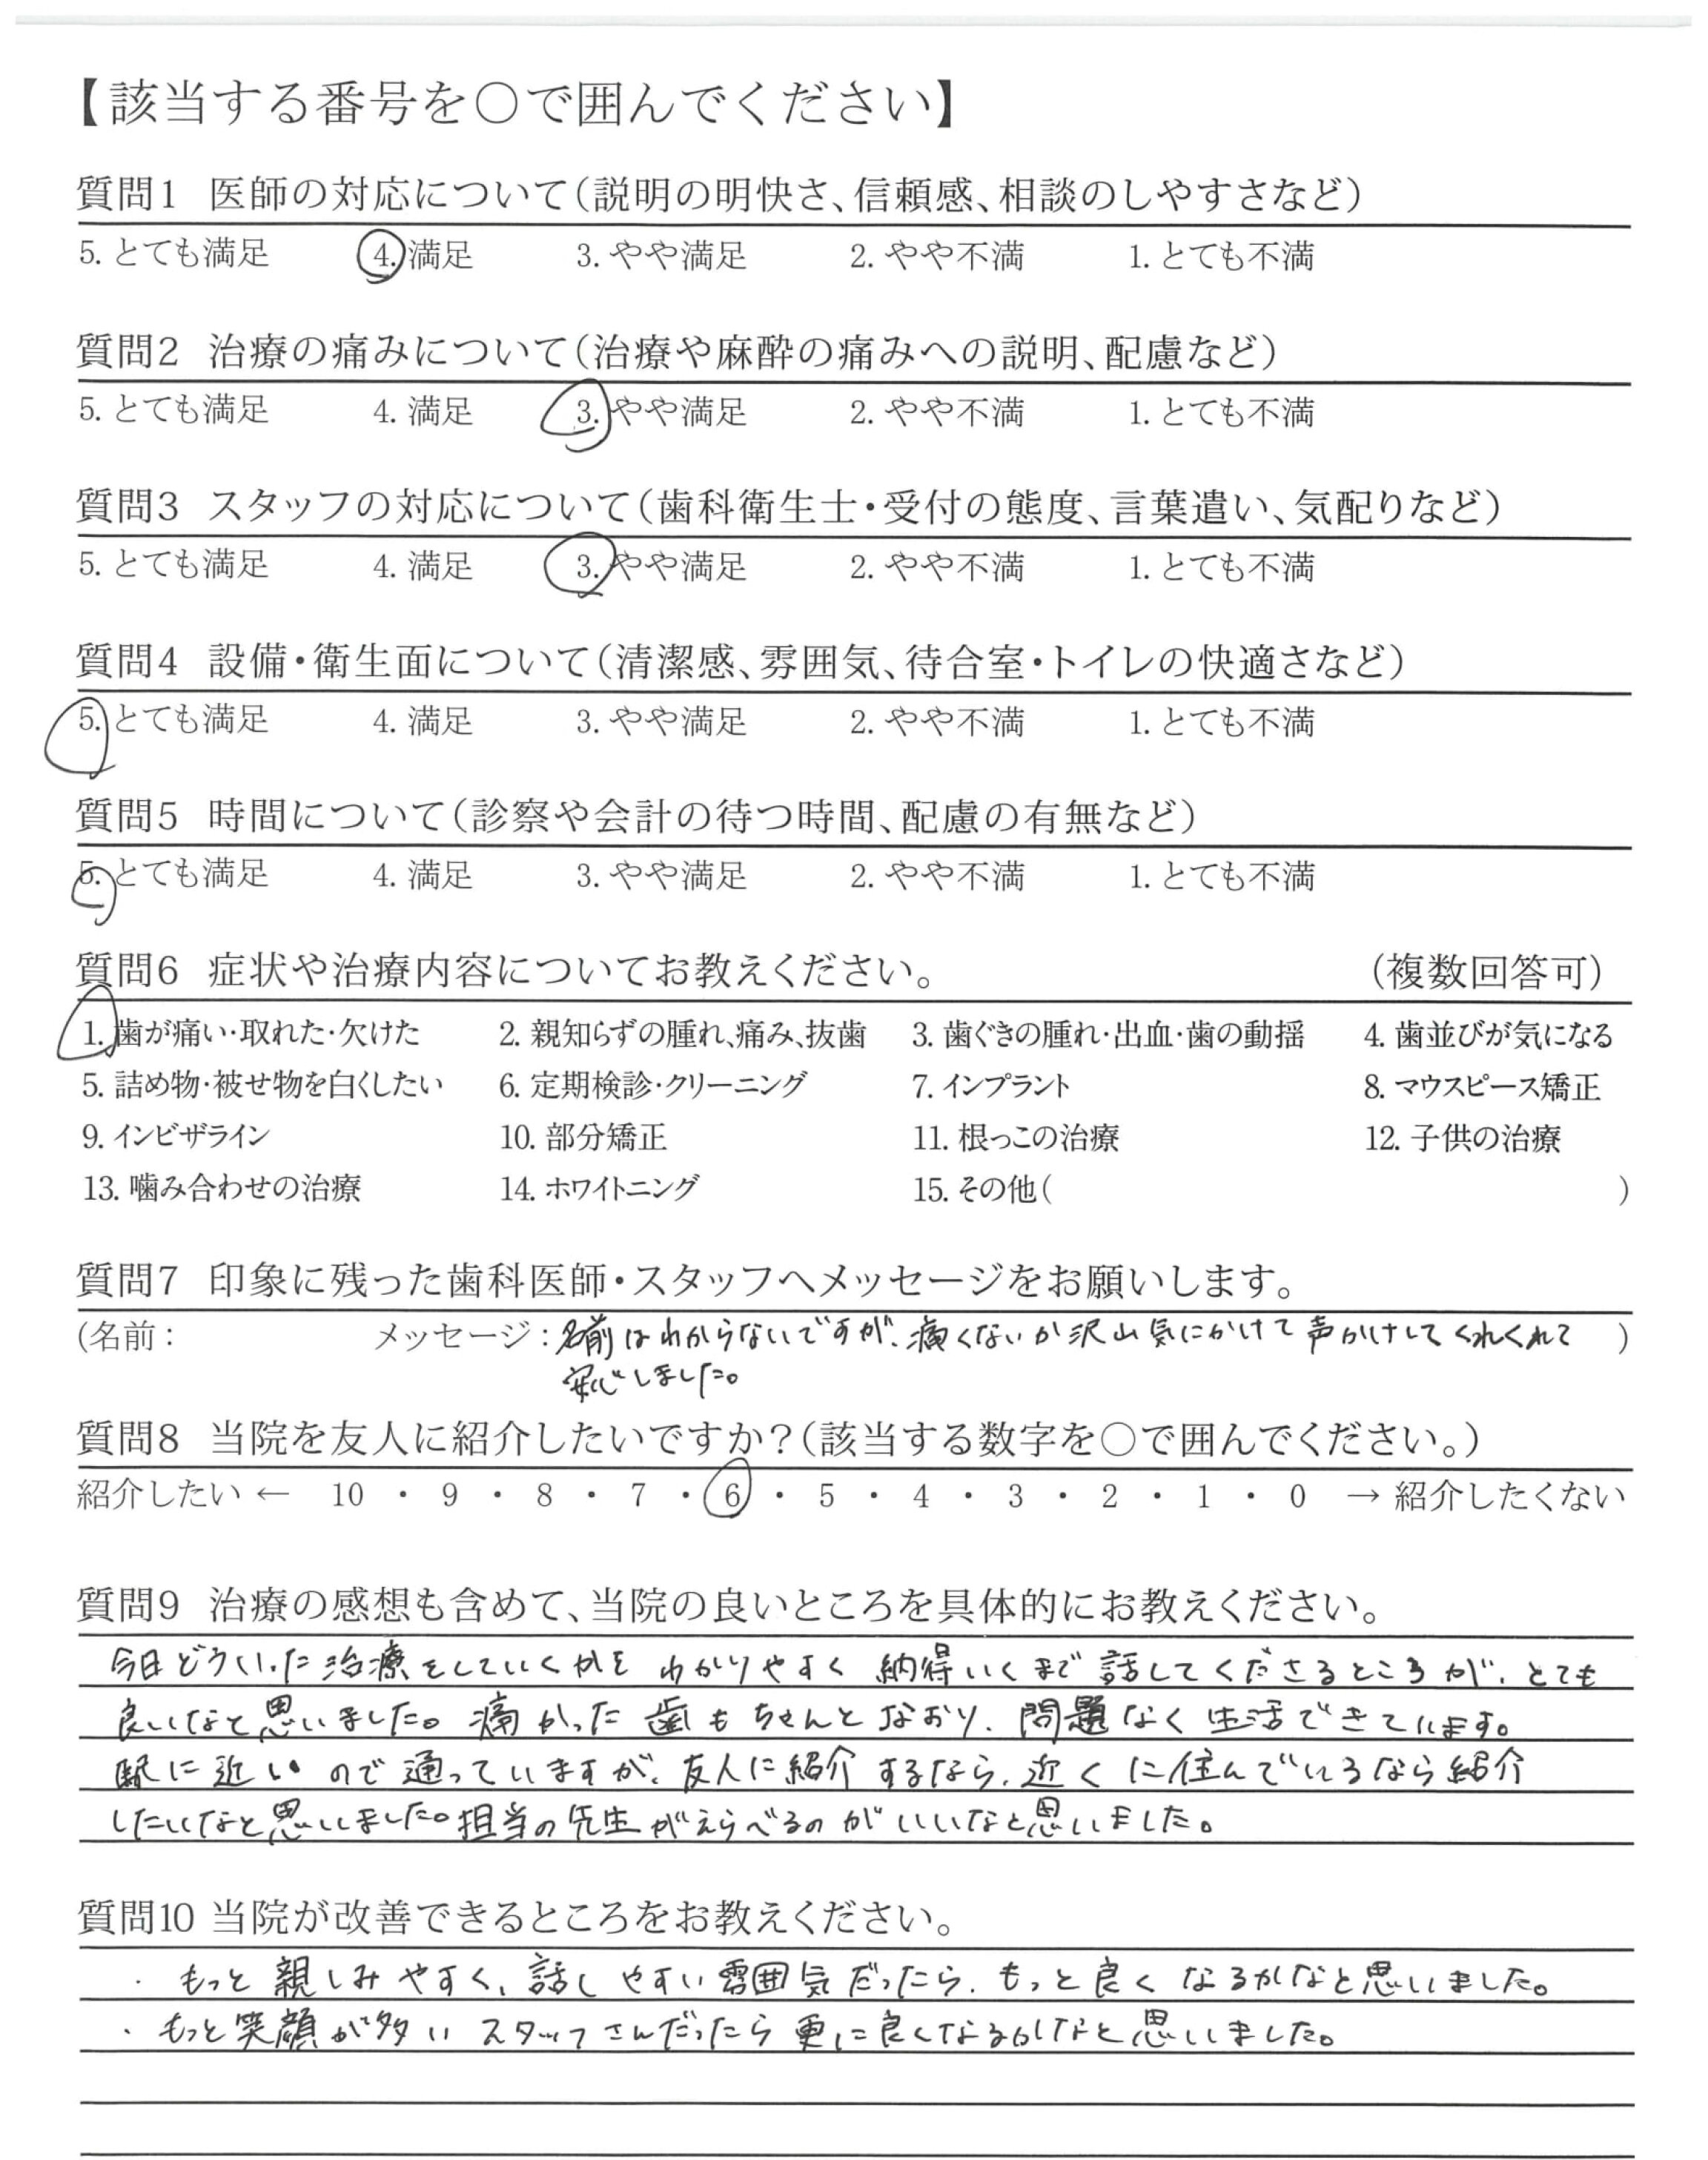 【該当する番号を○で囲んでください】
質問1 医師の対応について(説明の明快さ、信頼感、相談のしやすさなど)
5. とても満足 4. 満足 3. やや満足 2. やや不満 1. とても不満
質問2 治療の痛みについて(治療や麻酔の痛みへの説明、配慮など)
5. とても満足 4. 満足 3. やや満足 2. やや不満 1. とても不満
質問3 スタッフの対応について(歯科衛生士・受付の態度、言葉遣い、気配りなど)
5. とても満足 4. 満足 3. やや満足 2. やや不満 1. とても不満
質問4 設備・衛生面について(清潔感、雰囲気、待合室・トイレの快適さなど)
5. とても満足 4. 満足 3. やや満足 2. やや不満 1. とても不満
質問5 時間について(診察や会計の待つ時間、配慮の有無など)
5. とても満足 4. 満足 3. やや満足 2. やや不満 1. とても不満
質問6 症状や治療内容についてお教えください。 (複数回答可)
1. 歯が痛い・取れた・欠けた 2. 親知らずの腫れ、痛み、抜歯 3. 歯ぐきの腫れ・出血・歯の動揺 4. 歯並びが気になる
5. 詰め物・被せ物を白くしたい 6. 定期検診・クリーニング 7. インプラント 8. マウスピース矯正
9. インビザライン 10. 部分矯正 11. 根っこの治療 12. 子供の治療
13. 噛み合わせの治療 14. ホワイトニング 15. その他( )
質問7 印象に残った歯科医師・スタッフへメッセージをお願いします。
(名前: メッセージ:名前はわからないですが、痛くないか沢山気にかけて声かけしてくれくれて )
安心しました。
質問8 当院を友人に紹介したいですか?(該当する数字を○で囲んでください。)
紹介したい ← 10 ・ 9 ・ 8 ・ 7 ・ 6 ・ 5 ・ 4 ・ 3 ・ 2 ・ 1 ・ 0 → 紹介したくない
質問9 治療の感想も含めて、当院の良いところを具体的にお教えください。
今日どういった治療をしていくかをわかりやすく納得いくまで話してくださるところが、とても
良いなと思いました。痛かった歯もちゃんとなおり、問題なく生活できています。
駅に近いので通っていますが、友人に紹介するなら、近くに住んでいるなら紹介
したいなと思いました。担当の先生がえらべるのがいいなと思いました。
質問10 当院が改善できるところをお教えください。
・もっと親しみやすく、話しやすい雰囲気だったら、もっと良くなるかなと思いました。
・もっと笑顔が多いスタッフさんだったら更に良くなるかなと思いました。